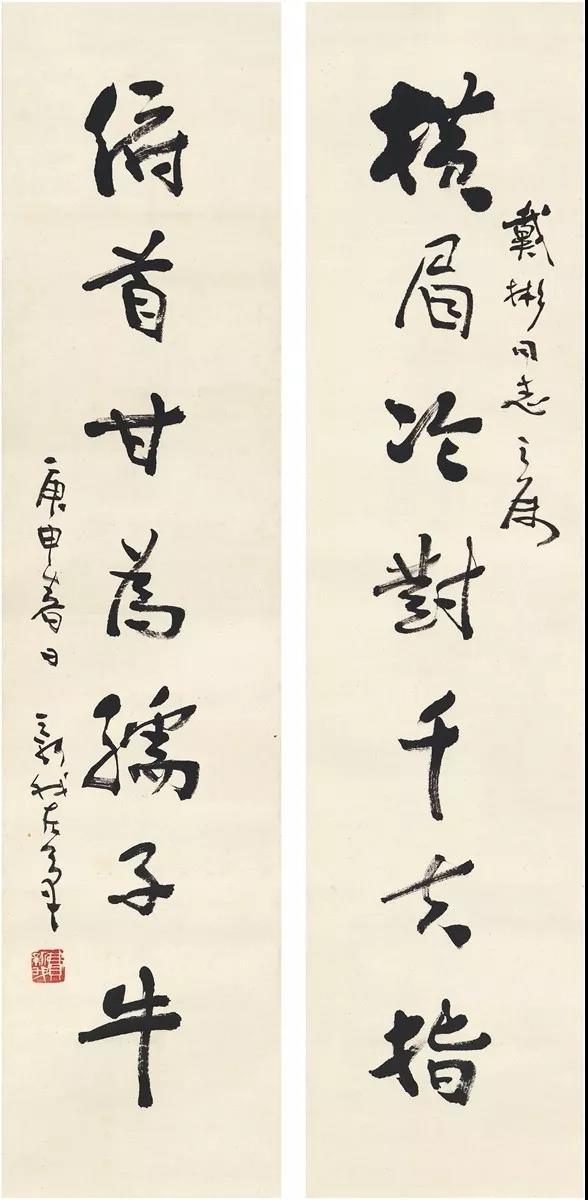 戴彬同志之屬
橫眉冷對千夫指
俯首甘為孺子牛
庚申春日
新我左